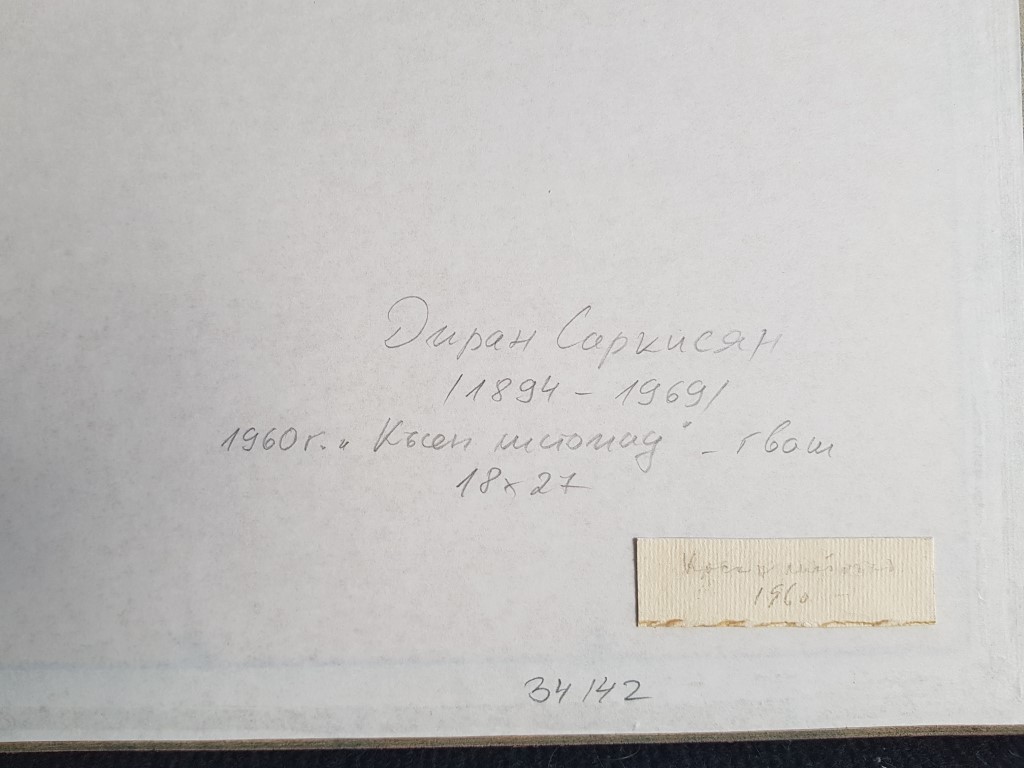 Диран Саркисян
/1894 - 1969/
1960г. „Късен листопад" - гваш
18x27
1960 -
34/42